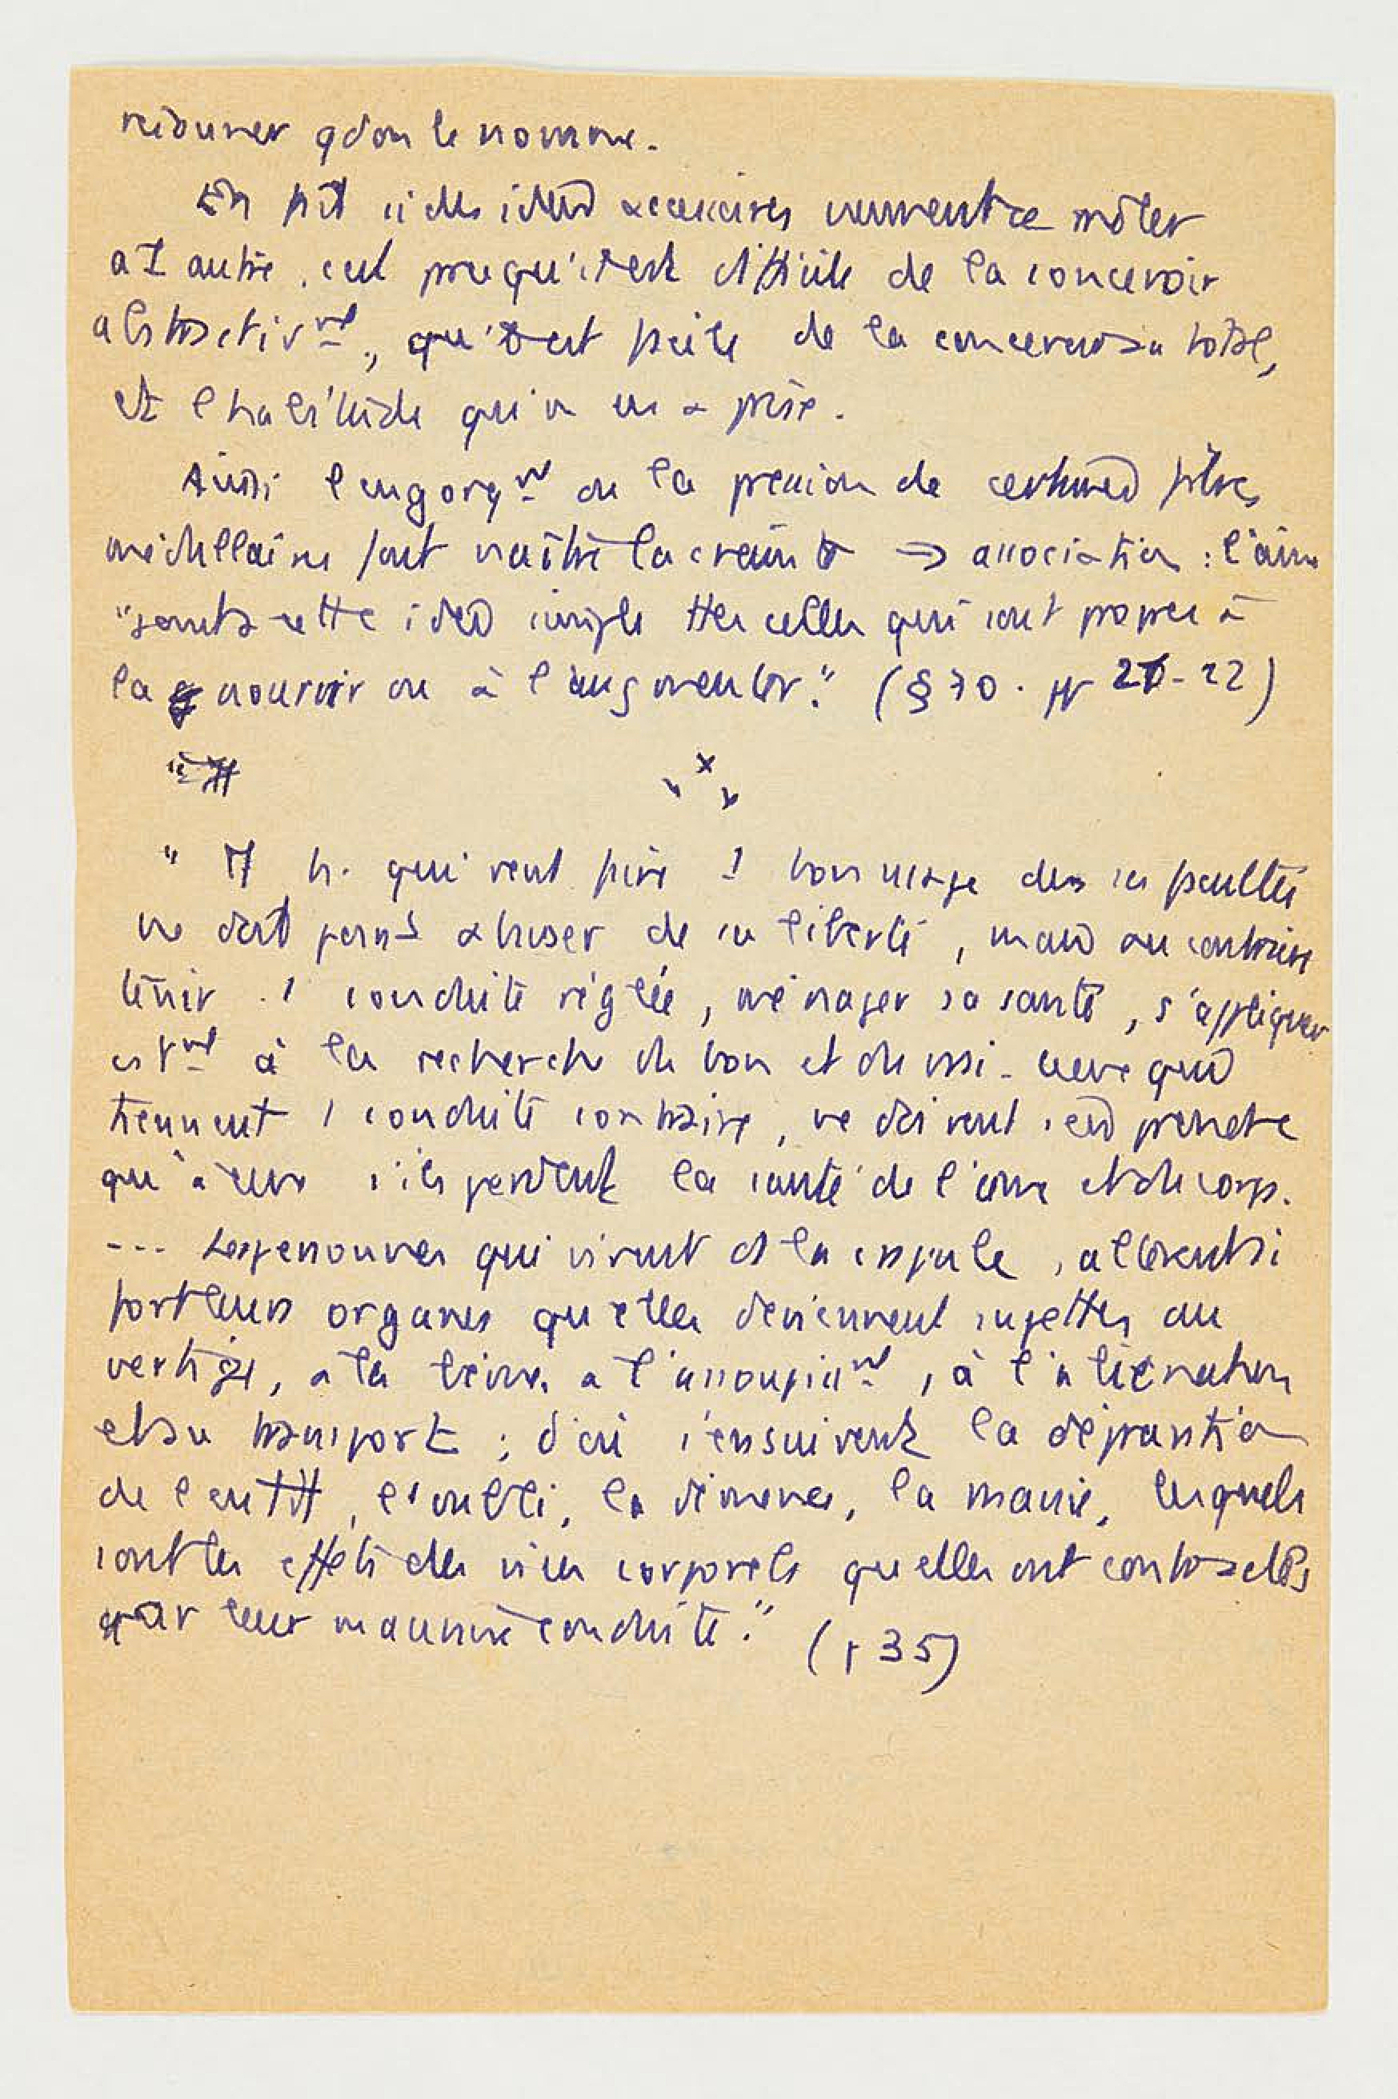 qd on le nomme.
En fait si des idées accessoires viennent se mêler
à 1 autre, c'est presqu'il est difficile de la concevoir
abstractivt, qu'il est facile de la concevoir au total,
et l'habitude qu'on en a prise.
Ainsi l'engorgt ou la pression de certaines fibres
médullaires font naître la crainte → association : l'âme
"joint à cette idée simple ttes celles qui sont propres à
la nourrir ou à l'augmenter." (§ 70. pp 21-22)
x
" Tt h. qui veut faire 1 bon usage de ses facultés
ne doit jamais abuser de sa liberté, mais au contraire
tenir 1 conduite réglée, ménager sa santé, s'appliquer
à la recherche du bon et du ceux qui
tiennent 1 conduite contraire, ne doivent s'en prendre
qu'à eux s'ils perdent la santé de l'âme et du corps.
--- Les personnes qui vivent ds la crapule, altèrent si
fort leurs organes qu'elles deviennent sujettes au
vertige, à la à l'assoupisst, à l'aliénation
et au transport ; d'où s'ensuivent la dépravation
de l'oubli, la démence, la manie, lesquels
sont les effets des vices corporels qu'elles ont contractés
par leur mauvaise conduite." (p 35)